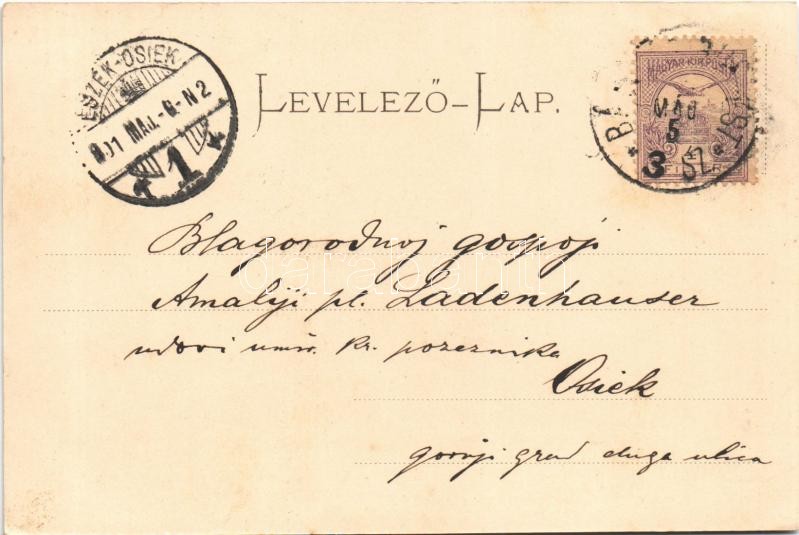 ESZÉK-OSIEK
901 MÁJ.-6-N2
1
LEVELEZŐ-LAP.
MAGYAR KIR. POSTA
MÁJ
5
3
FILLÉR
Blagorodnoj gospoji
Amaliji pl. Ladenhauser
udovi umir. kr. pozeznika
Osiek
gornji grad duga ulica
darabanth